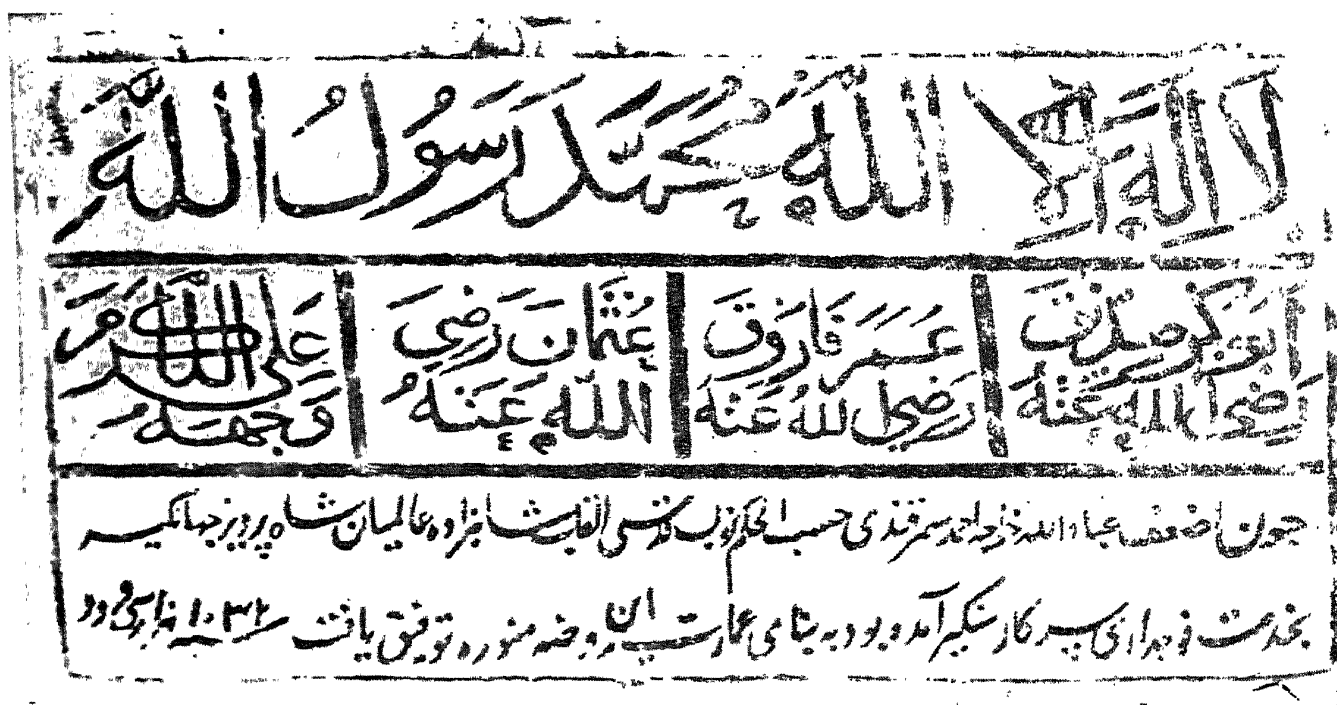 لَا إِلٰهَ إِلَّا اللّٰهُ مُحَمَّدٌ رَسُولُ اللّٰهِ
ابوبکر صدیق رضی الله عنه
عمر فاروق رضی الله عنه
عثمان رضی الله عنه
علی کرم الله وجهه
چون اضعف عباد الله خواجه احمد سمرقندی حسب الحکم نواب قدسی القاب شاهزاده عالمیان شاه پرویز جهانگیر
بخدمت فوجداری سرکار آمده بود به بنای عمارت این روضه منوره توفیق یافت سنه ۱۰۳۲